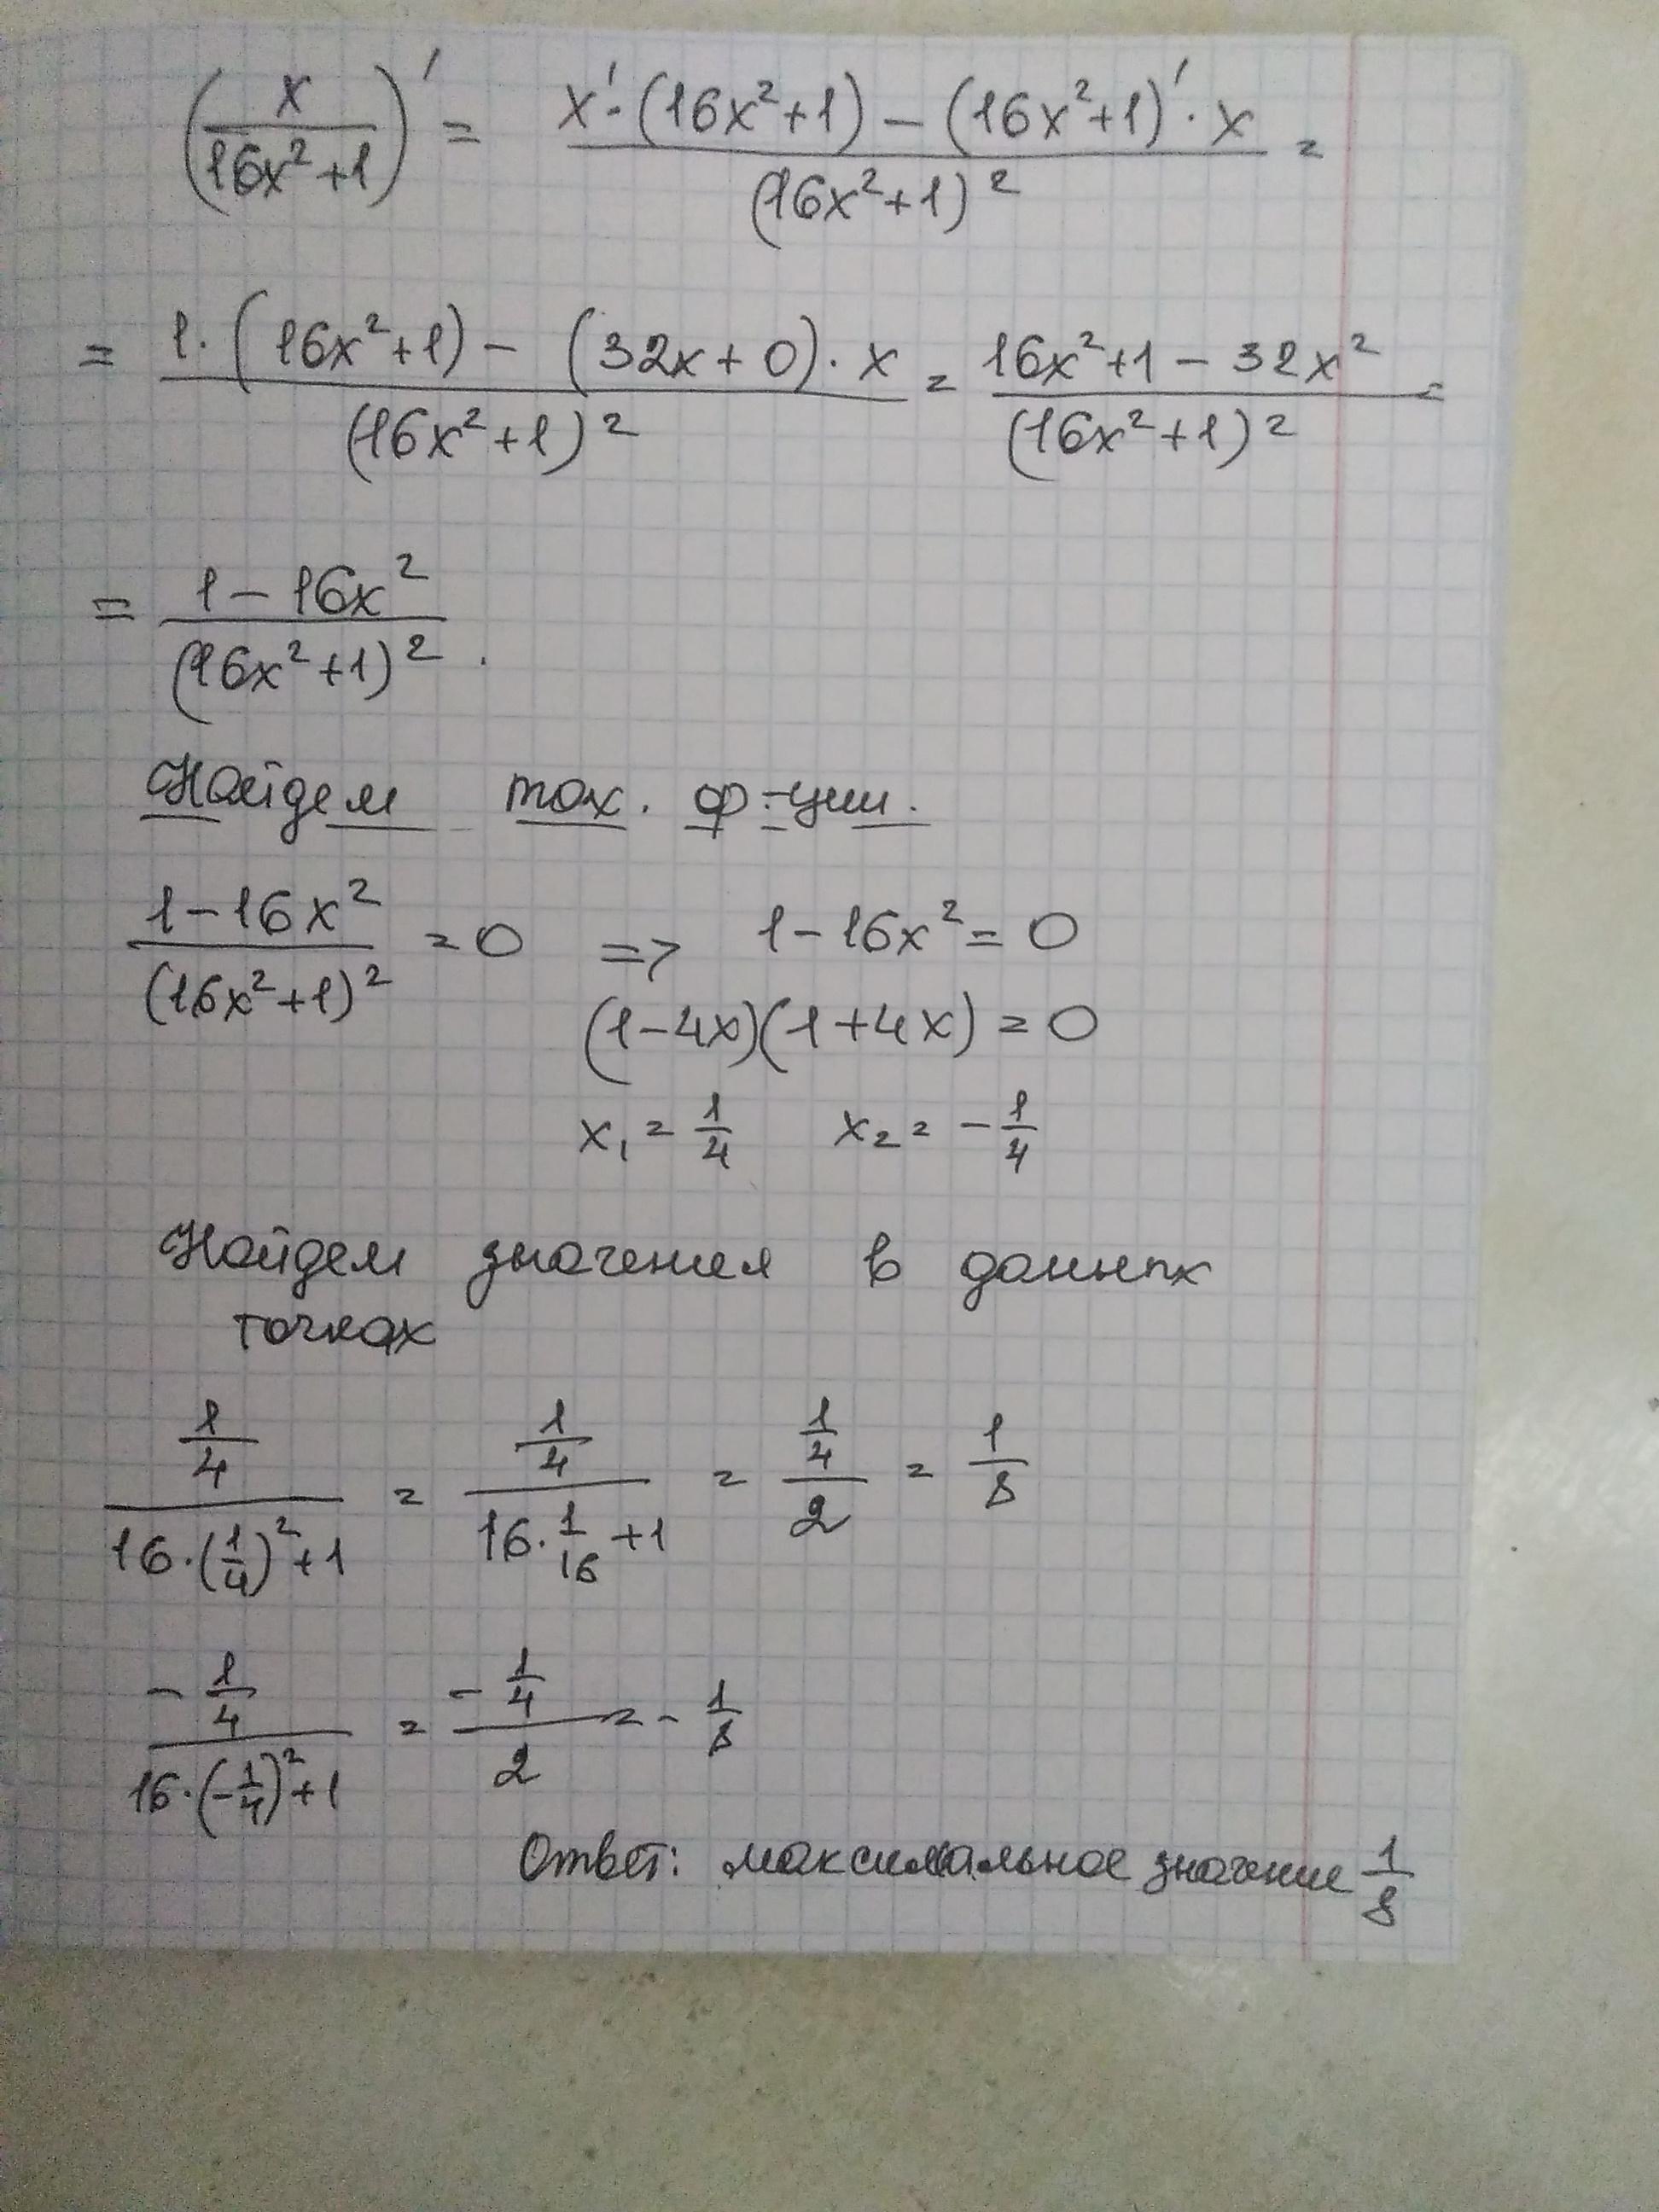 (x/(16x²+1))' = (x'·(16x²+1) − (16x²+1)'·x)/(16x²+1)² =
= (1·(16x²+1) − (32x+0)·x)/(16x²+1)² = (16x²+1−32x²)/(16x²+1)² =
= (1−16x²)/(16x²+1)².
Найдем max. ф-ции.
(1−16x²)/(16x²+1)² = 0 => 1−16x² = 0
(1−4x)(1+4x) = 0
x₁ = 1/4 x₂ = −1/4
Найдем значения в данных
точках
(1/4)/(16·(1/4)²+1) = (1/4)/(16·1/16+1) = (1/4)/2 = 1/8
(−1/4)/(16·(−1/4)²+1) = (−1/4)/2 = −1/8
Ответ: максимальное значение 1/8